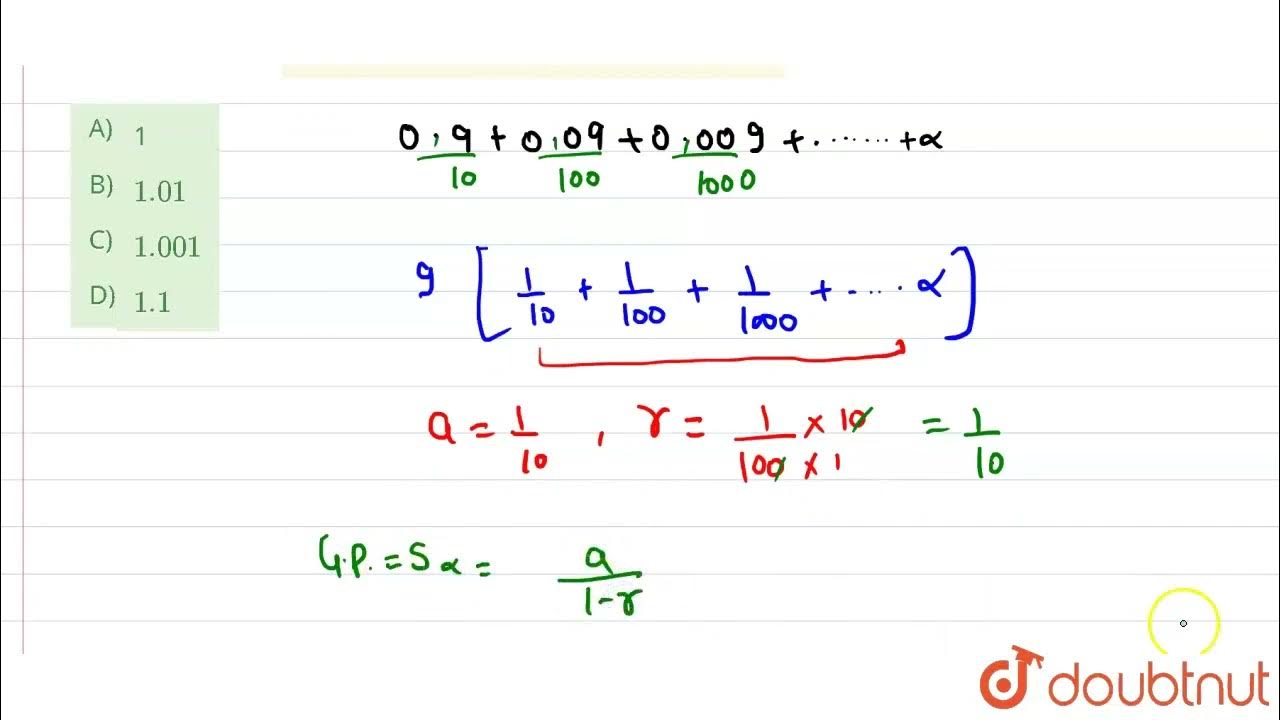 A) 1
B) 1.01
C) 1.001
D) 1.1
0.9 + 0.09 + 0.009 + ........ + α
10 100 1000
9 [ 1/10 + 1/100 + 1/1000 + ..... α ]
a = 1/10 , r = 1/100 × 10/1 = 1/10
G.P. = Sα = a/1-r
doubtnut